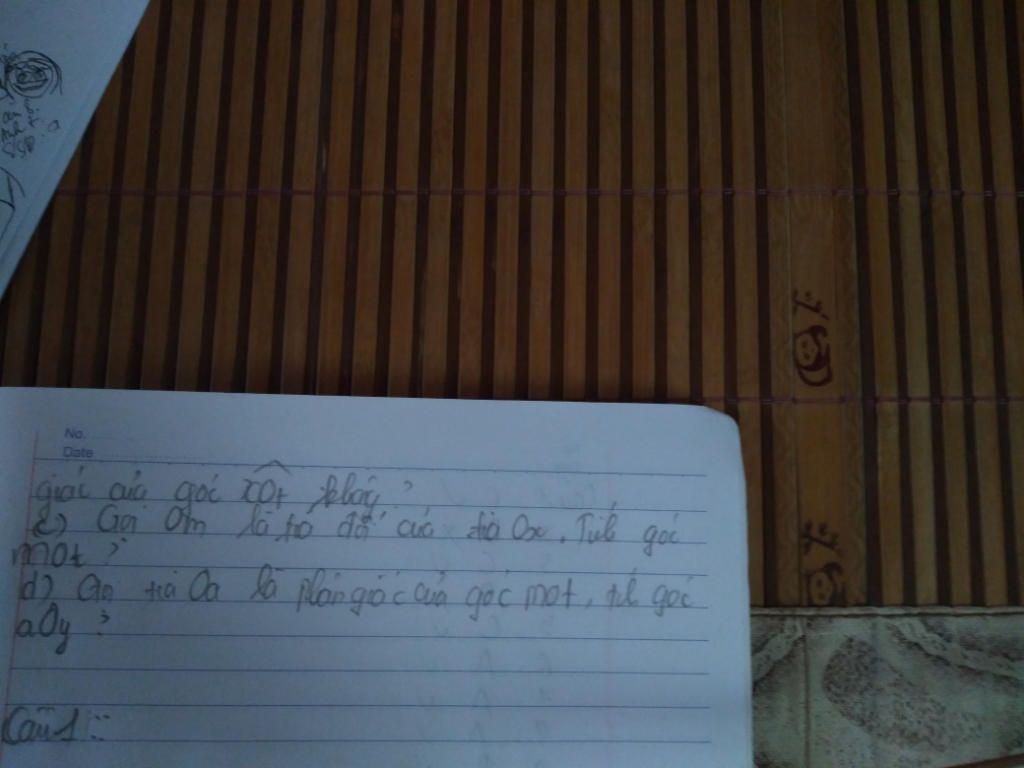 No.
Date
giác của góc xOt không?
c) Gọi Om là tia đối của tia Ox. Tính góc
mOt?
d) Gọi tia Oa là phân giác của góc mOt, tính góc
aOy?
Câu 1: